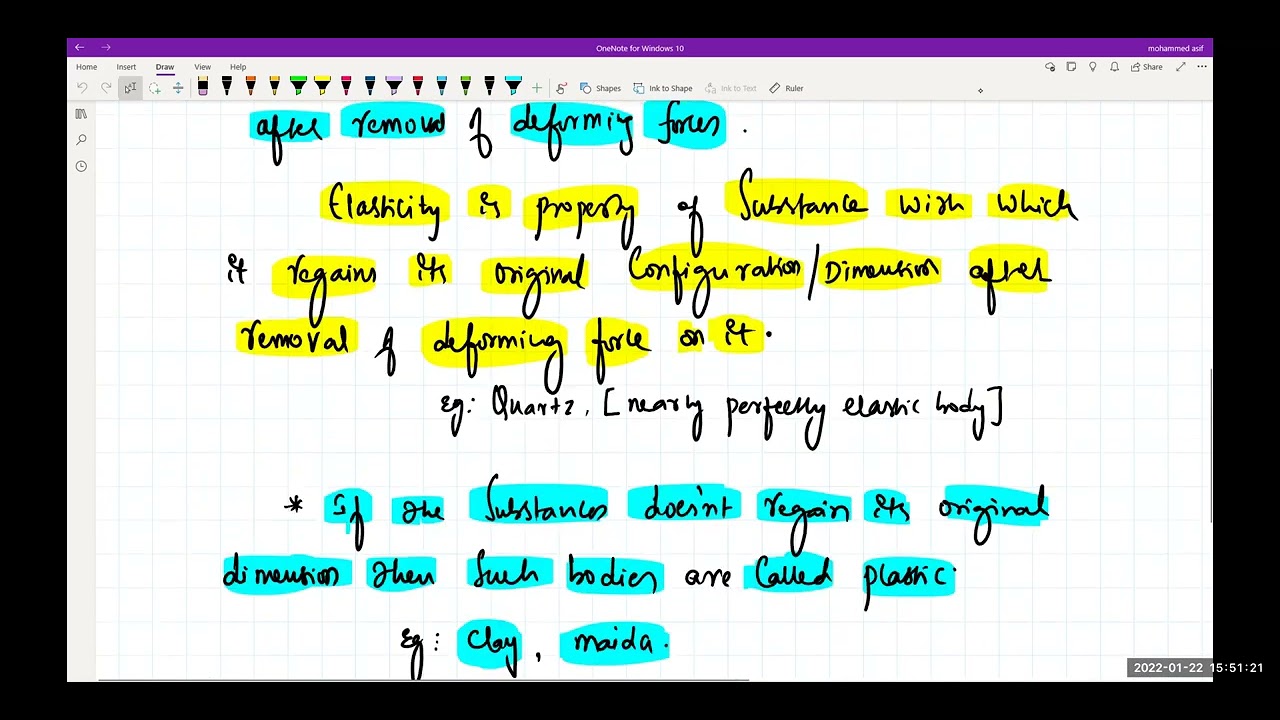 OneNote for Windows 10
mohammed asif
Home Insert Draw View Help
Share
Shapes Ink to Shape Ink to Text Ruler
after removal of deforming forces.
Elasticity is property of Substance with which
it regains its original Configuration/Dimension after
removal of deforming force on it.
Eg: Quartz, [nearly perfectly elastic body]
* If the Substances doesn't regain its original
dimension then Such bodies are Called plastic.
Eg: Clay, maida.
2022-01-22 15:51:21